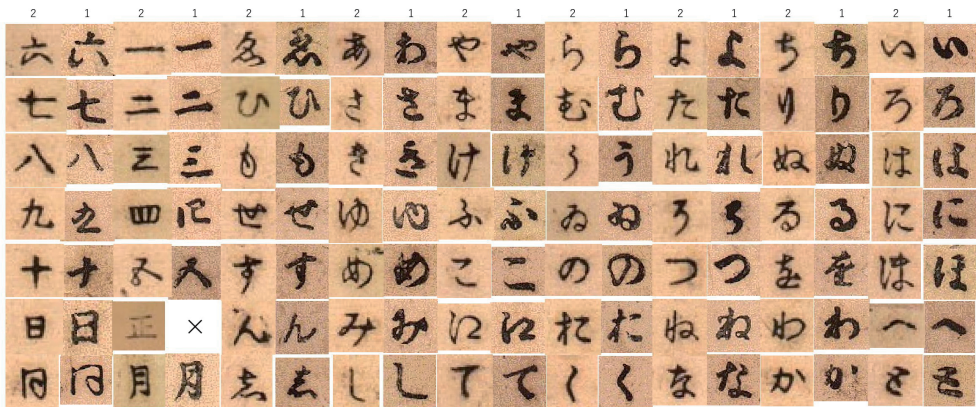 2 1 2 1 2 1 2 1 2 1 2 1 2 1 2 1 2 1
六 六 一 一 ゑ ゑ あ あ や や ら ら よ よ ち ち い い
七 七 二 二 ひ ひ さ さ ま ま む む た た り り ろ ろ
八 八 三 三 も も き き け け う う れ れ ぬ ぬ は は
九 九 四 四 せ せ ゆ ゆ ふ ふ ゐ ゐ そ そ る る に に
十 十 五 五 す す め め こ こ の の つ つ を を ほ ほ
日 日 正 × ん ん み み え え お お ね ね わ わ へ へ
同 同 月 月 志 志 し し て て く く な な か か と と